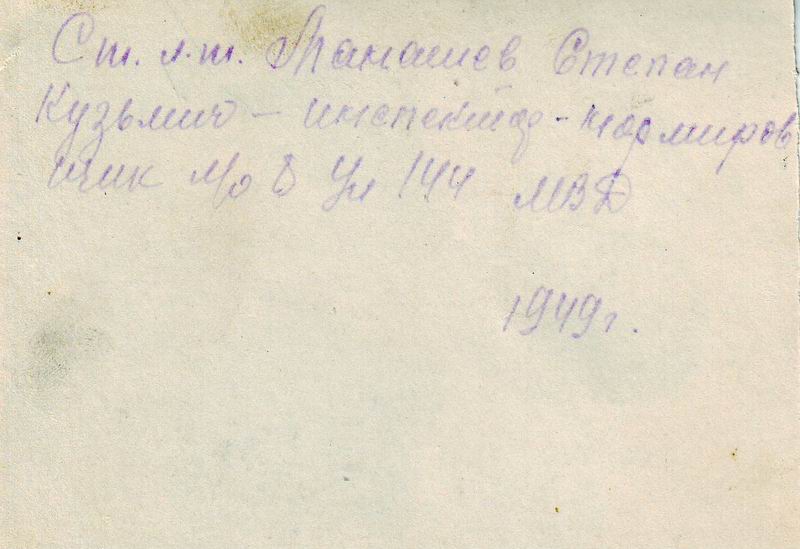 Ст. л-т. Манашев Степан
Кузьмич – инспектор-нормиров
щик л/о 8 144 МВД
1949 г.